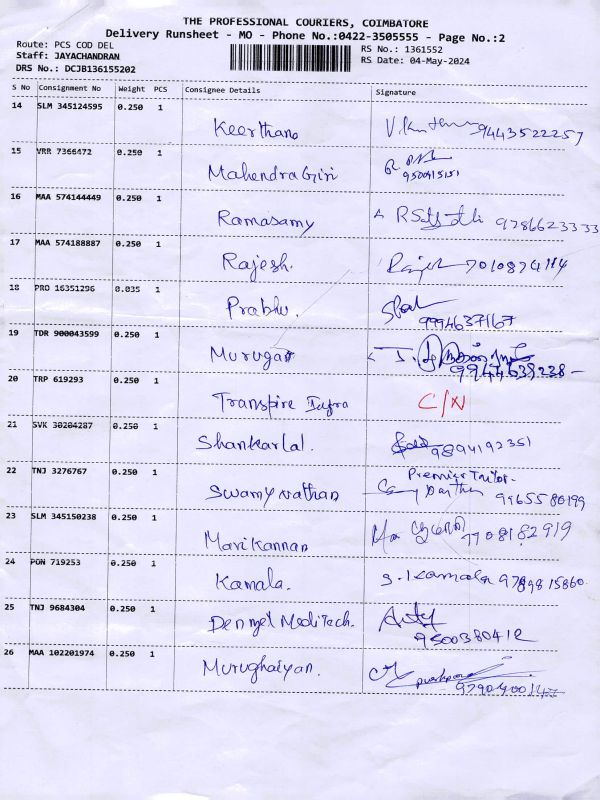 THE PROFESSIONAL COURIERS, COIMBATORE
Delivery Runsheet - MO - Phone No.:0422-3505555 - Page No.:2
Route: PCS COD DEL
Staff: JAYACHANDRAN
DRS No.: DCJB136155202
RS No.: 1361552
RS Date: 04-May-2024
S No Consignment No Weight PCS Consignee Details Signature
14 SLM 345124595 0.250 1 Keerthana 9443522257
15 VRR 7366472 0.250 1 Mahendra Giri
9500915151
16 MAA 574144449 0.250 1 Ramasamy 9786623333
17 MAA 574188887 0.250 1 Rajesh. Rajesh 7010874114
18 PRO 16351296 0.035 1 Prabhu.
9994637167
19 TDR 900043599 0.250 1 Murugan
9944638238
20 TRP 619293 0.250 1 Transpire Infra C/N
21 SVK 30204287 0.250 1 Shankarlal. 9894192351
22 TNJ 3276767 0.250 1 Swamynathan Premier Tailor.
9965580199
23 SLM 345150238 0.250 1 Marikannan 7708182919
24 PON 719253 0.250 1 Kamala. S. Kamala 9789815860.
25 TNJ 9684304 0.250 1 Denmel MediTech.
9500380412
26 MAA 102201974 0.250 1 Murughaiyan.